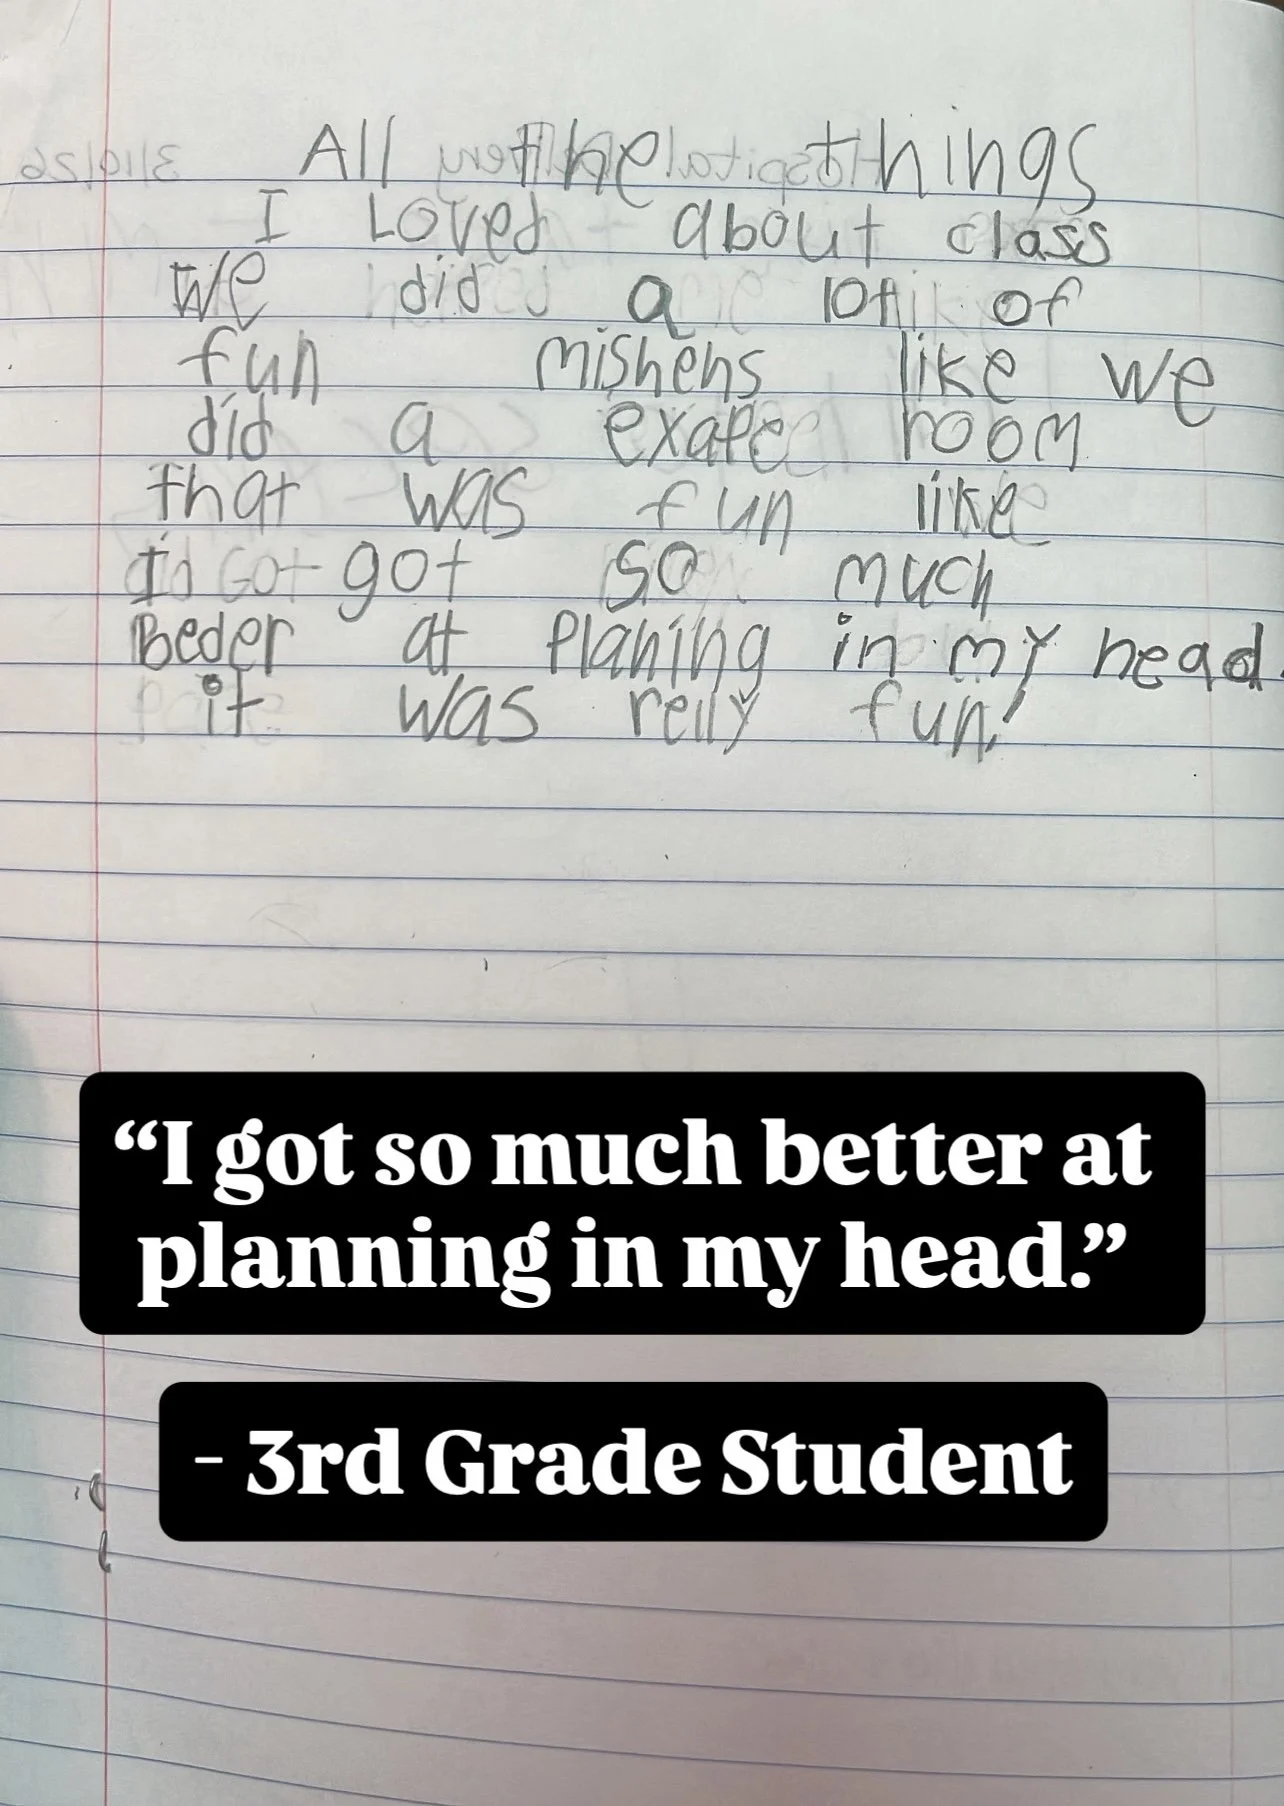 All the things
I Loved about class
We did a lot of
fun mishens like we
did a exape room
that was fun like
I got so much
Beder at planing in my head.
it was relly fun!
“I got so much better at
planning in my head.”
- 3rd Grade Student